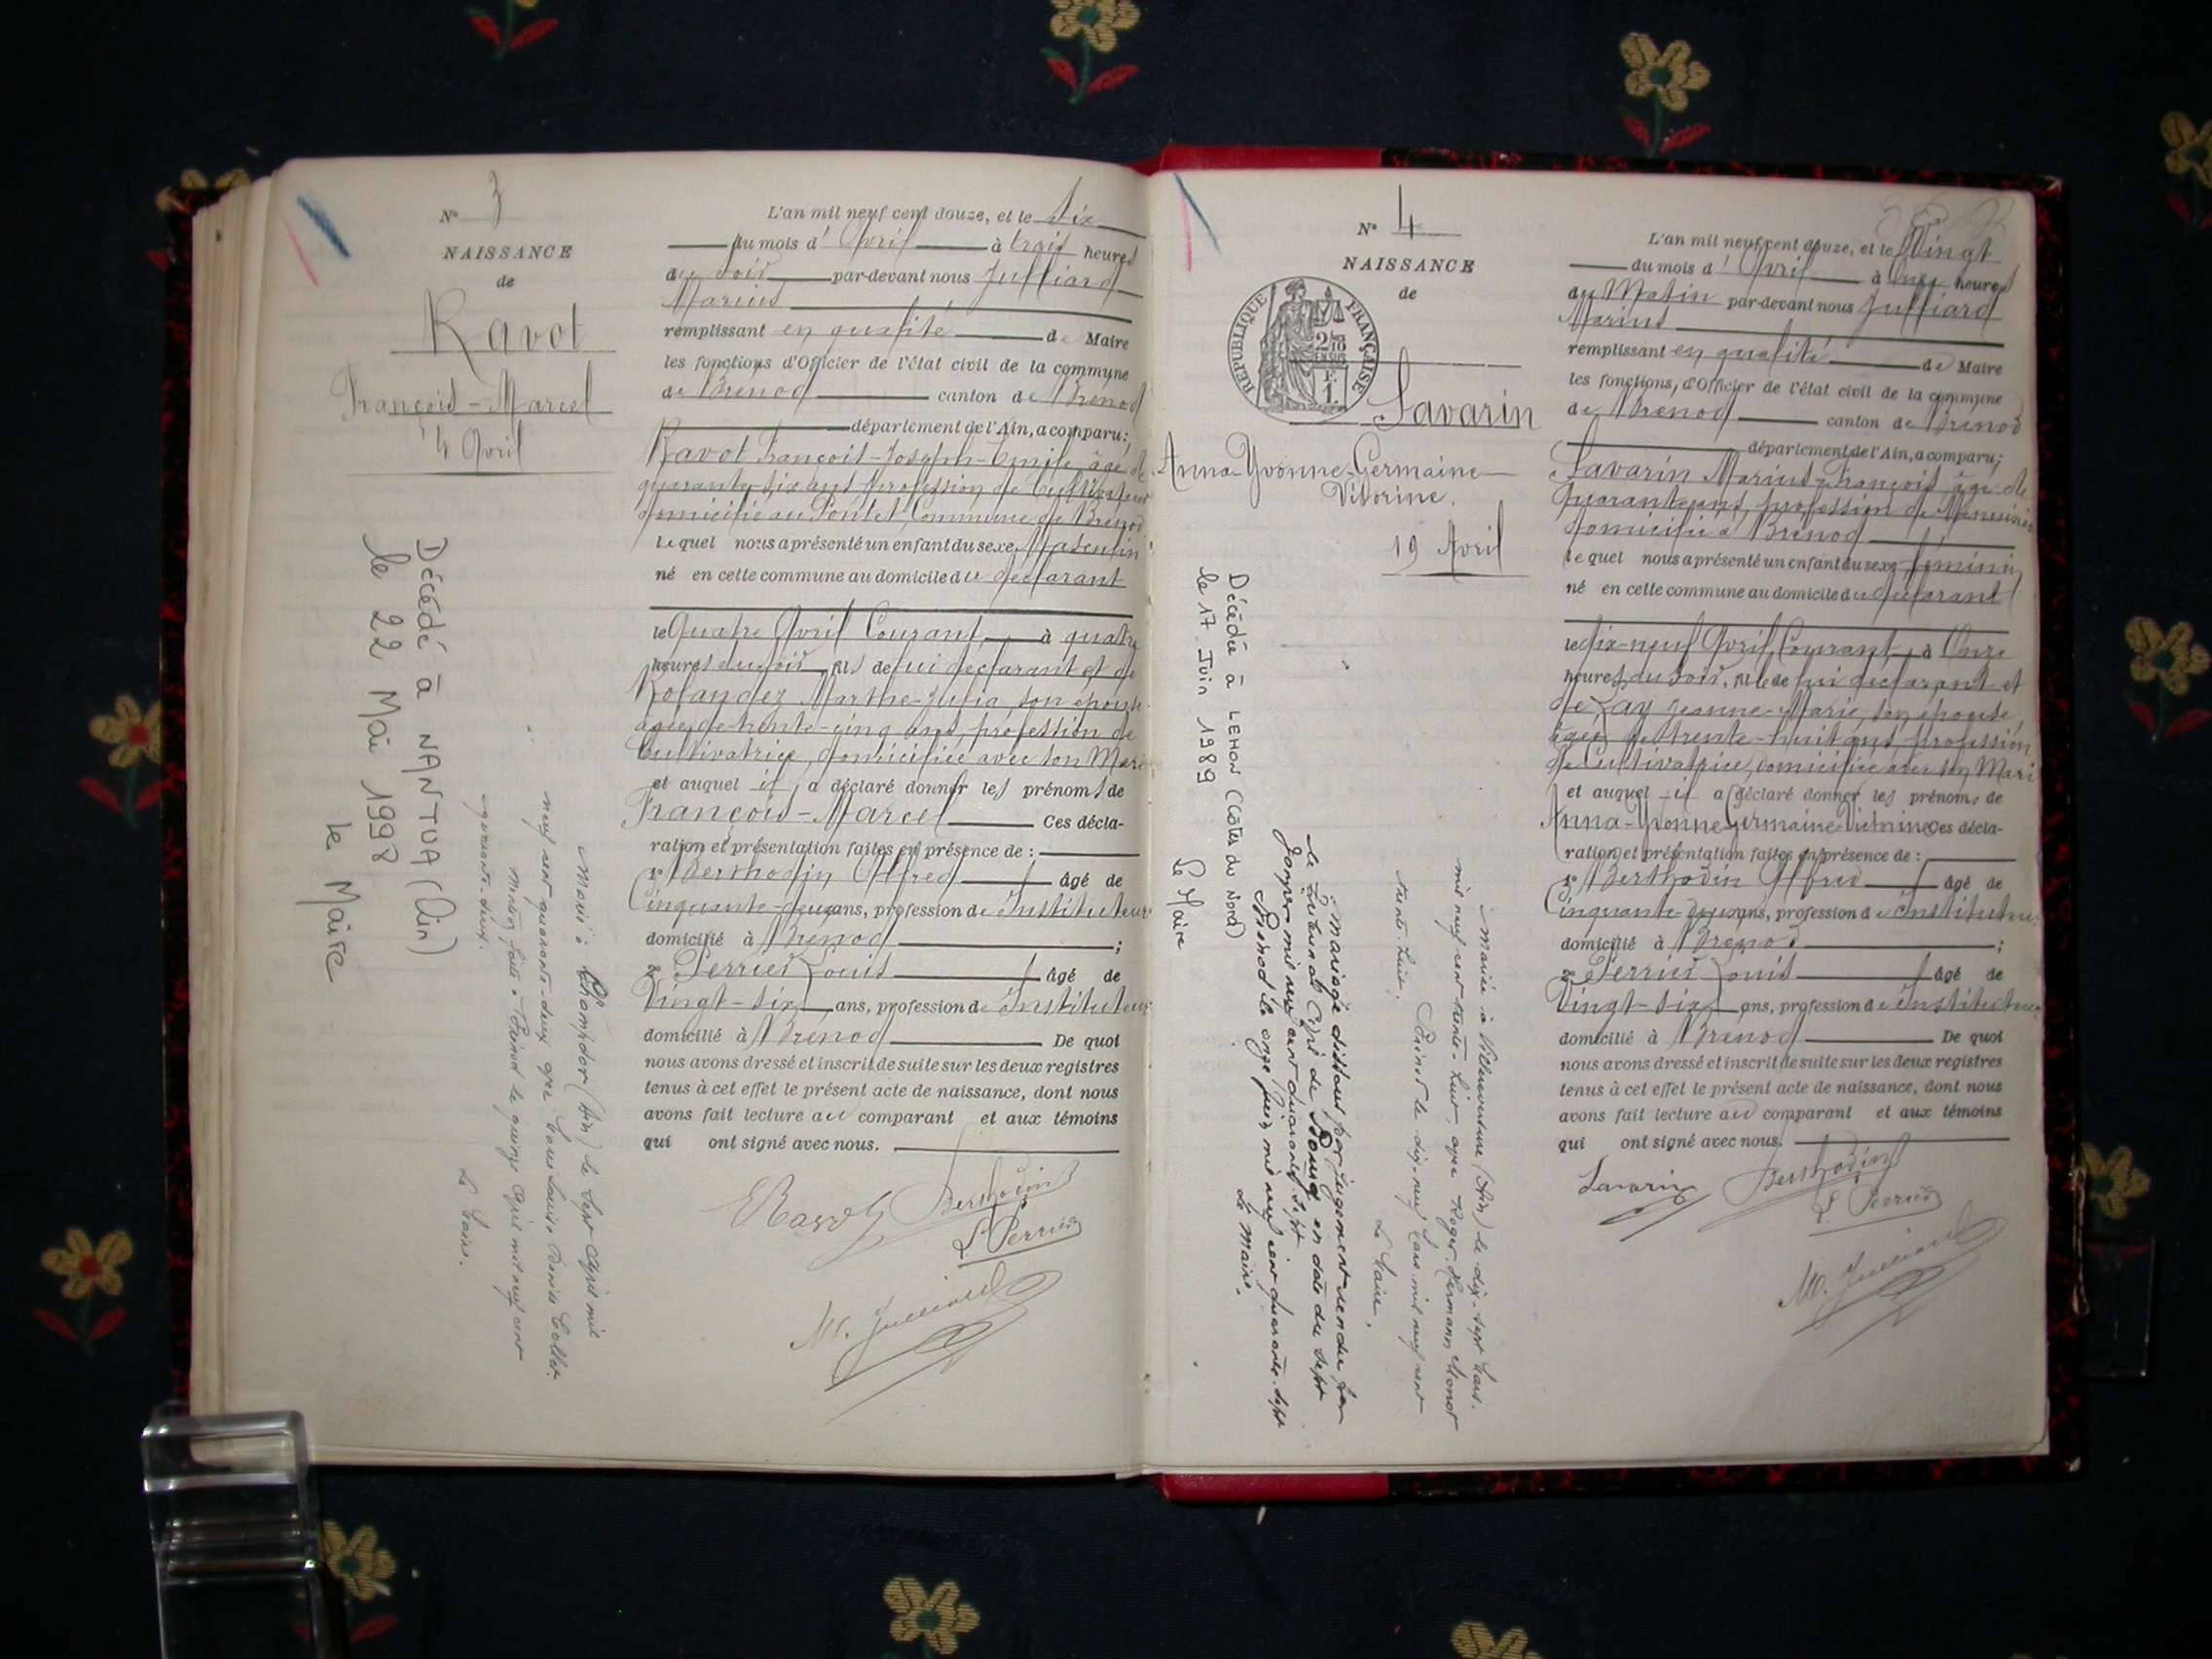 N° 3
NAISSANCE
de
Ravot
François-Marcel
4 Avril
Décédé à NANTUA (Ain)
le 22 Mai 1998
le Maire
Marié à Champdor (Ain) le sept Avril mil
neuf cent quarante-deux avec
Mention faite à Brénod le quinze Avril mil neuf cent
quarante-deux.
Le Maire.
L'an mil neuf cent douze, et le Six
du mois d'Avril à trois heures
du soir par-devant nous Julliard
Marius
remplissant en qualité de Maire
les fonctions d'Officier de l'état civil de la commune
de Brénod canton de Brénod
département de l'Ain, a comparu:
Ravot François-Joseph-Emile, âgé de
quarante-six ans profession de Cultivateur
domicilié au Poutet, Commune de Brénod
Lequel nous a présenté un enfant du sexe Masculin
né en cette commune au domicile du déclarant
le Quatre Avril Courant, à quatre
heures du soir, fils de lui déclarant et de
Rolandez Marthe-Julia, son épouse
âgée de trente-cinq ans, profession de
Cultivatrice, domiciliée avec son Mari
et auquel il a déclaré donner les prénoms de
François-Marcel Ces décla-
ration et présentation faites en présence de :
1° Berthodin Alfred âgé de
Cinquante-deux ans, profession de Instituteur
domicilié à Brénod ;
2° Perrier Louis âgé de
Vingt-six ans, profession de Instituteur
domicilié à Brénod De quoi
nous avons dressé et inscrit de suite sur les deux registres
tenus à cet effet le présent acte de naissance, dont nous
avons fait lecture au comparant et aux témoins
qui ont signé avec nous.
E Ravot Berthodin
L. Perrier
M. Julliard
N° 4
NAISSANCE
de
REPUBLIQUE FRANÇAISE
2/10
EN SUS
F.
1.
Savarin
Anna-Yvonne-Germaine
Victorine.
19 Avril
Décédée à LEHON (Côtes du Nord)
le 17 Juin 1989
Le Maire
Mariage dissous par jugement rendu par
le Tribunal Civil de Bourg en date du sept
Janvier mil neuf cent quarante-sept
Brénod le onze Juin mil neuf cent quarante-sept
Le Maire.
Mariée à Villereversure (Ain) le dix-sept Mars
mil neuf cent trente-huit, avec Roger, Hermann, Monot
Brénod le dix-neuf Mars mil neuf cent
trente-huit.
Le Maire,
L'an mil neuf cent douze, et le Vingt
du mois d'Avril à Onze heures
du Matin par-devant nous Julliard
Marius
remplissant en qualité de Maire
les fonctions d'Officier de l'état civil de la commune
de Brénod canton de Brénod
département de l'Ain, a comparu:
Savarin Marius-François âgé de
Quarante ans, profession de Menuisier
domicilié à Brénod
Lequel nous a présenté un enfant du sexe féminin
né en cette commune au domicile du déclarant
le dix-neuf Avril, Courant, à Onze
heures du Soir, fille de lui déclarant et
de Lay Jeanne-Marie, son épouse,
âgée de trente-huit ans, profession
de Cultivatrice, domiciliée avec son Mari
et auquel il a déclaré donner les prénoms de
Anna-Yvonne-Germaine-Victorine Ces décla-
ration et présentation faites en présence de :
1° Berthodin Alfred âgé de
Cinquante-deux ans, profession de Instituteur
domicilié à Brénod ;
2° Perrier Louis âgé de
Vingt-six ans, profession de Instituteur
domicilié à Brénod De quoi
nous avons dressé et inscrit de suite sur les deux registres
tenus à cet effet le présent acte de naissance, dont nous
avons fait lecture au comparant et aux témoins
qui ont signé avec nous.
Savarin Berthodin
L. Perrier
M. Julliard